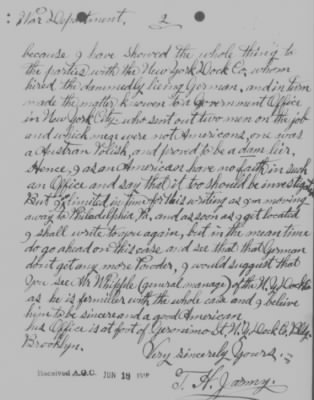 War Department. 2
because I have showed the whole thing to
the parties with the New York Dock Co, whom
hired the dammedly lieing German, and in turn
made the matter known to a Government Office
in New York City who sent out two men on the job
and which men were not Americans, one was
a Austran Polish, and proved to be a dam lier.
Hence, I as an American have no faith in such
an Office and say that it too should be investigated
But I limited in time for this writing as I am moving
away to Philadelphia, Pa, and as soon as I get located
I shall write to you again, but in the mean time
do go ahead on this case and see that that German
dont get any more Powder, I would suggust that
you see Mr Whipple (general manager) of the N.Y. Dock Co
as he is familier with the whole case and I believe
him to be sincere and a good American
his Office is at foot of Geronimo St. N.Y. Dock Co, Bldg.
Brooklyn.
Very sincerely Yours.
Received A.G.O. JUN 18
T. H.